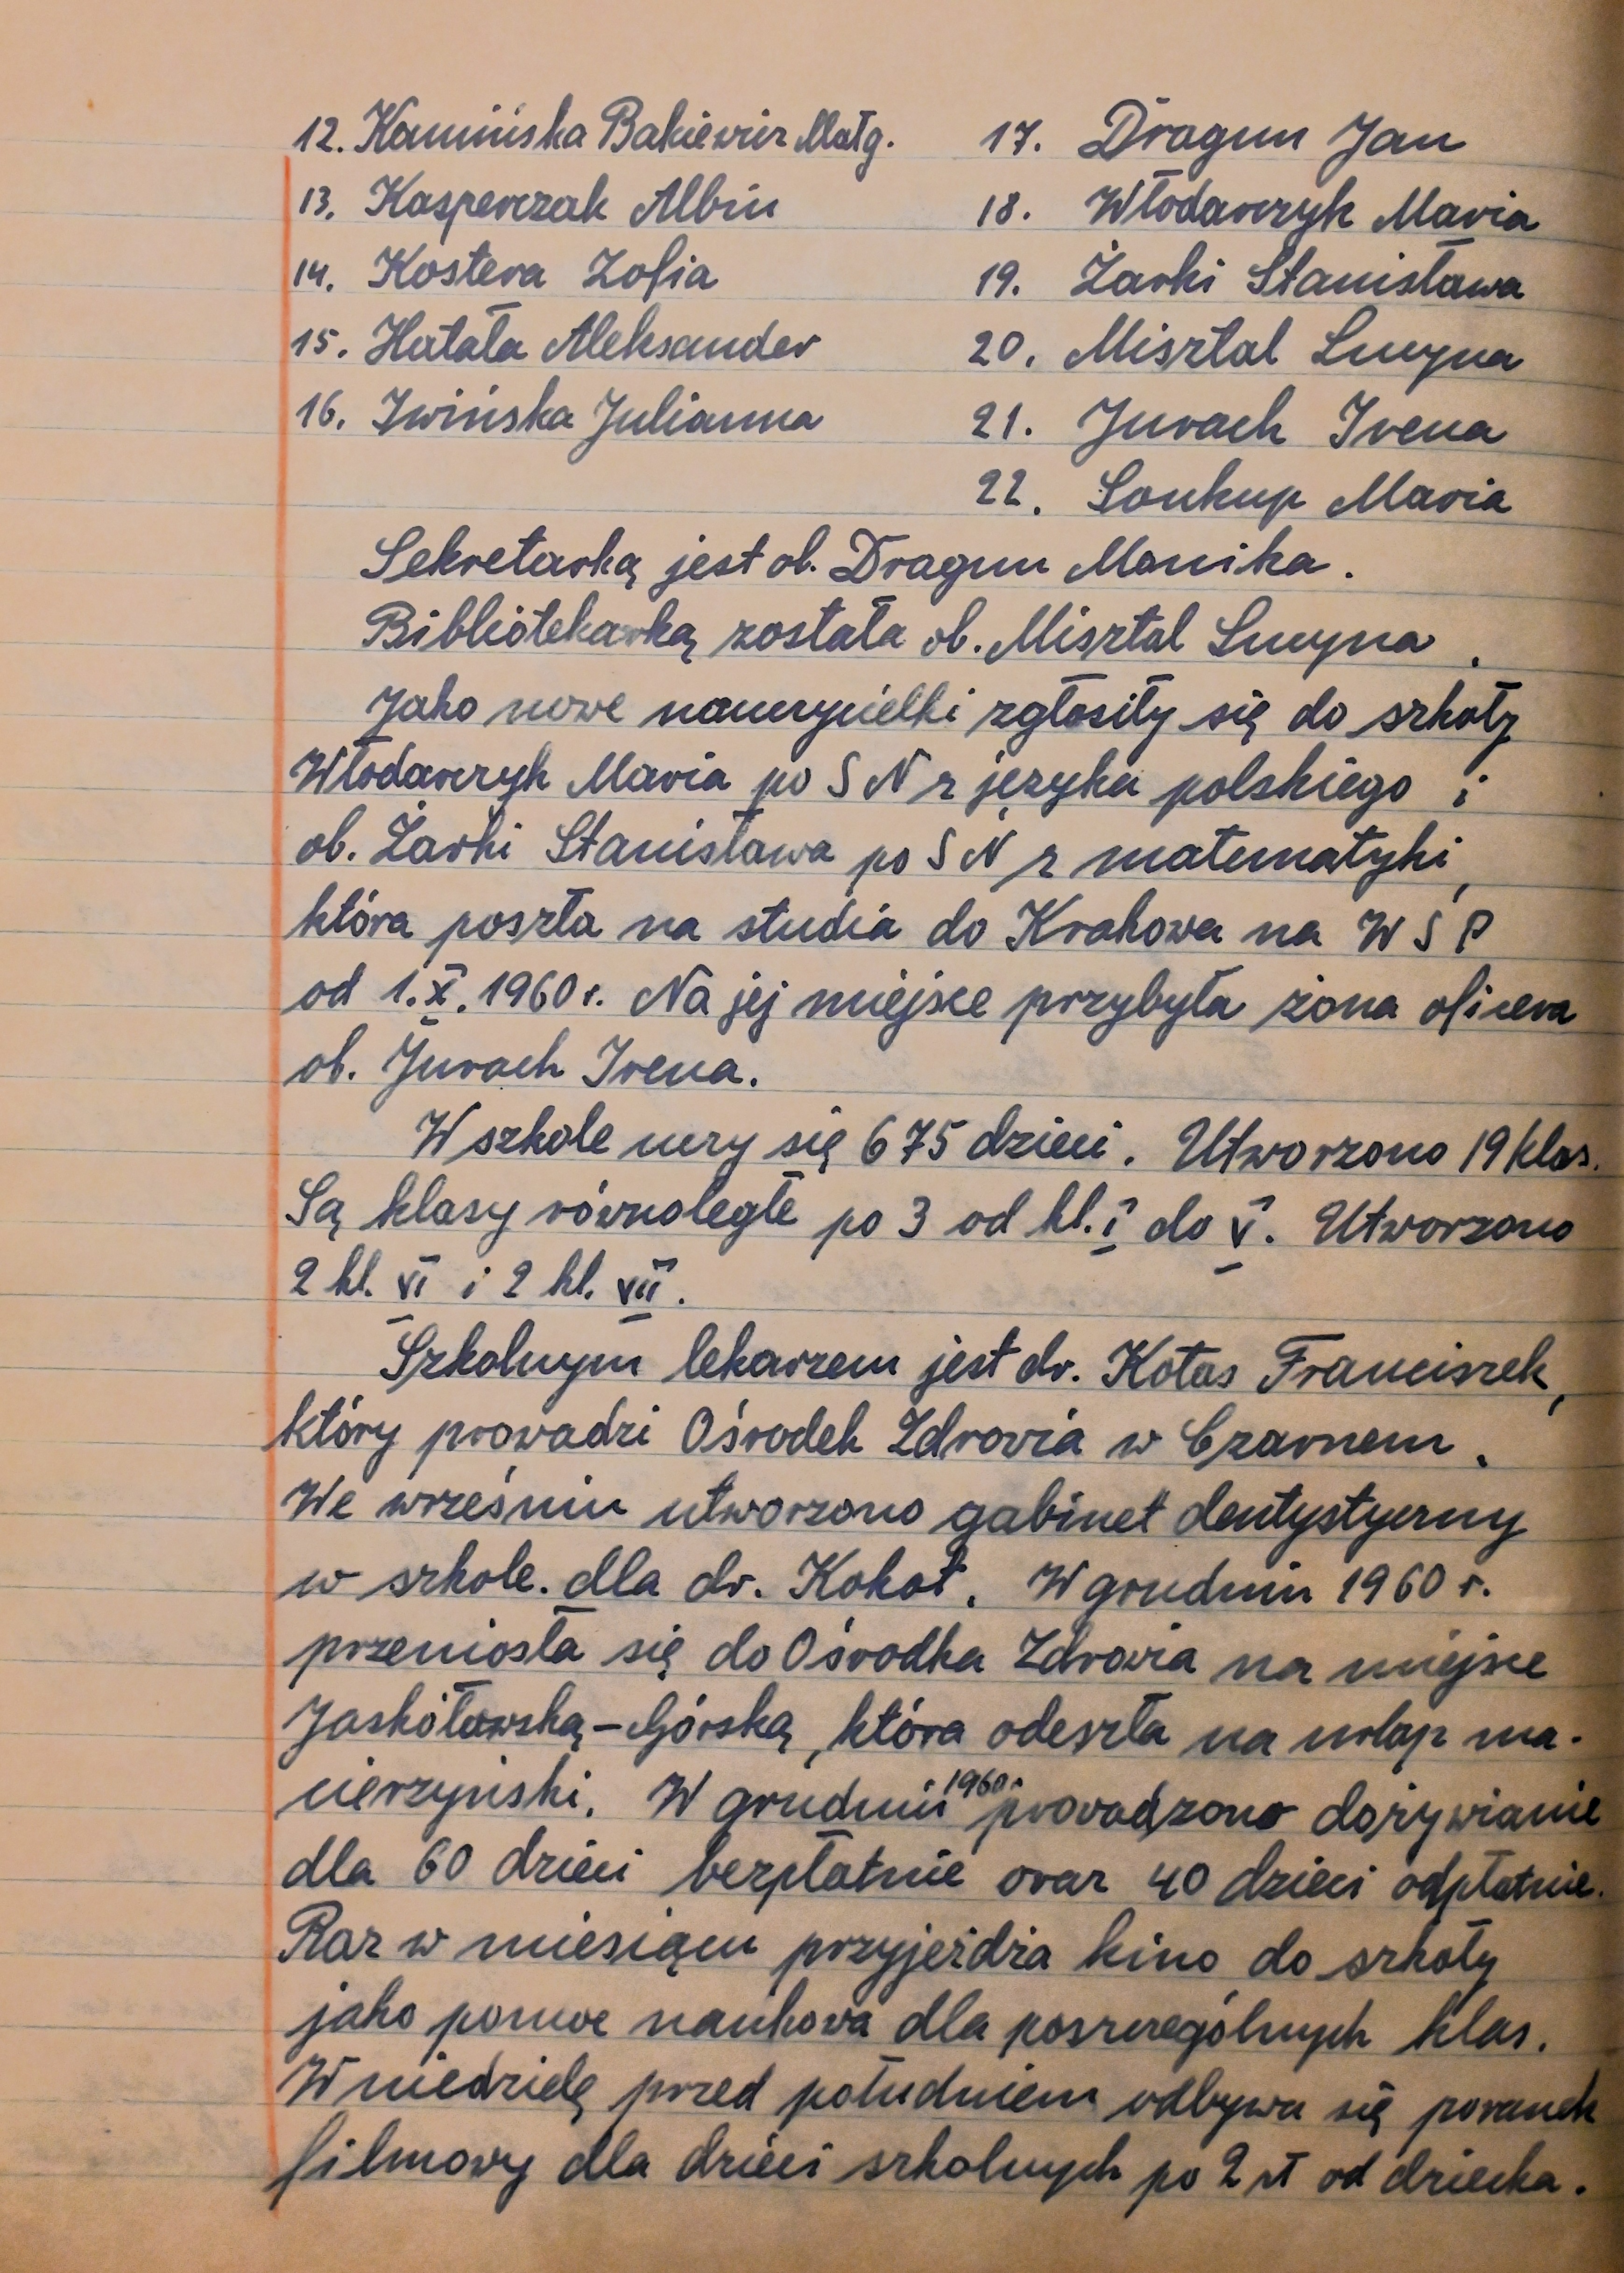 12. Kamińska Bakiewicz Małg.
13. Kasperczak Albin
14. Kostera Zofia
15. Hatała Aleksander
16. Iwińska Julianna
17. Dragun Jan
18. Włodarczyk Maria
19. Żarki Stanisława
20. Misztal Lucyna
21. Jurach Irena
22. Soukup Maria
Sekretarką jest ob. Dragun Monika.
Bibliotekarką została ob. Misztal Lucyna.
Jako nowe nauczycielki zgłosiły się do szkoły
Włodarczyk Maria po SN z języka polskiego i
ob. Żarki Stanisława po SN z matematyki,
która poszła na studia do Krakowa na WSP
od 1.X.1960 r. Na jej miejsce przybyła żona oficera
ob. Jurach Irena.
W szkole uczy się 675 dzieci. Utworzono 19 klas.
Są klasy równoległe po 3 od kl. I do V. Utworzono
2 kl. VI i 2 kl. VII.
Szkolnym lekarzem jest dr. Kotas Franciszek,
który prowadzi Ośrodek Zdrowia w Czarnem.
We wrześniu utworzono gabinet dentystyczny
w szkole. dla dr. Kokot. W grudniu 1960 r.
przeniosła się do Ośrodka Zdrowia na miejsce
Jaskółowską-Górską, która odeszła na urlop ma-
cierzyński. W grudniu 1960 r. prowadzono dożywianie
dla 60 dzieci bezpłatnie oraz 40 dzieci odpłatnie.
Raz w miesiącu przyjeżdża kino do szkoły
jako pomoc naukowa dla poszczególnych klas.
W niedzielę przed południem odbywa się poranek
filmowy dla dzieci szkolnych po 2 zł od dziecka.